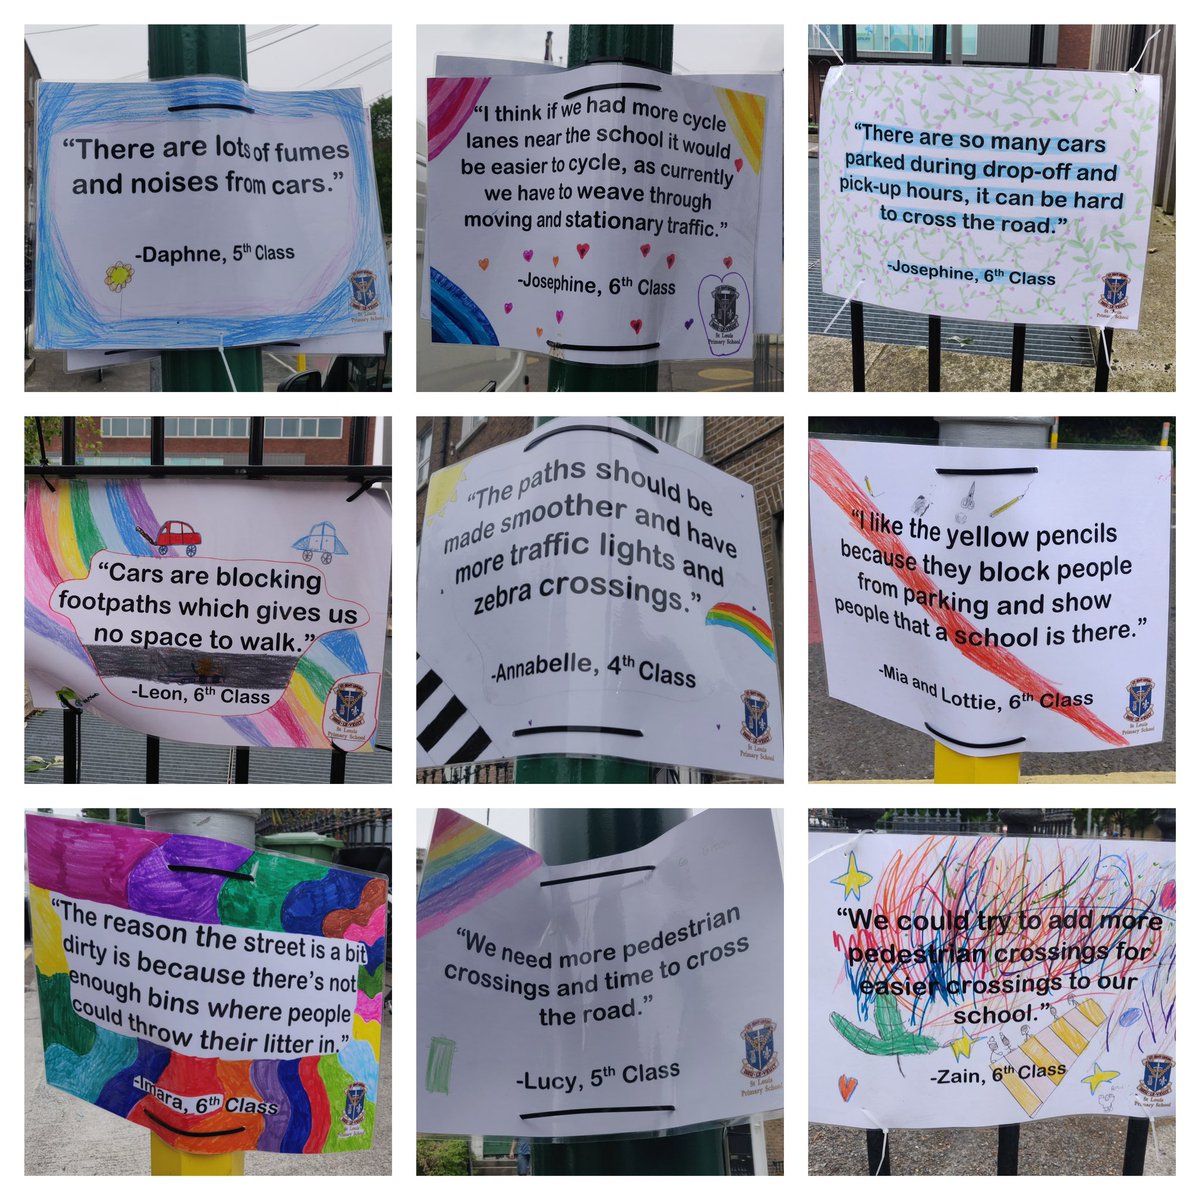 “There are lots of fumes
and noises from cars.”
-Daphne, 5th Class
St Louis
Primary School
“I think if we had more cycle
lanes near the school it would
be easier to cycle, as currently
we have to weave through
moving and stationary traffic.”
-Josephine, 6th Class
St Louis
Primary School
“There are so many cars
parked during drop-off and
pick-up hours, it can be hard
to cross the road.”
-Josephine, 6th Class
St Louis
Primary School
“Cars are blocking
footpaths which gives us
no space to walk.”
-Leon, 6th Class
St Louis
Primary School
“The paths should be
made smoother and have
more traffic lights and
zebra crossings.”
-Annabelle, 4th Class
St Louis
Primary School
“I like the yellow pencils
because they block people
from parking and show
people that a school is there.”
-Mia and Lottie, 6th Class
St Louis
Primary School
“The reason the street is a bit
dirty is because there’s not
enough bins where people
could throw their litter in.”
-Imara, 6th Class
St Louis
Primary School
“We need more pedestrian
crossings and time to cross
the road.”
-Lucy, 5th Class
St Louis
Primary School
“We could try to add more
pedestrian crossings for
easier crossings to our
school.”
-Zain, 6th Class
St Louis
Primary School